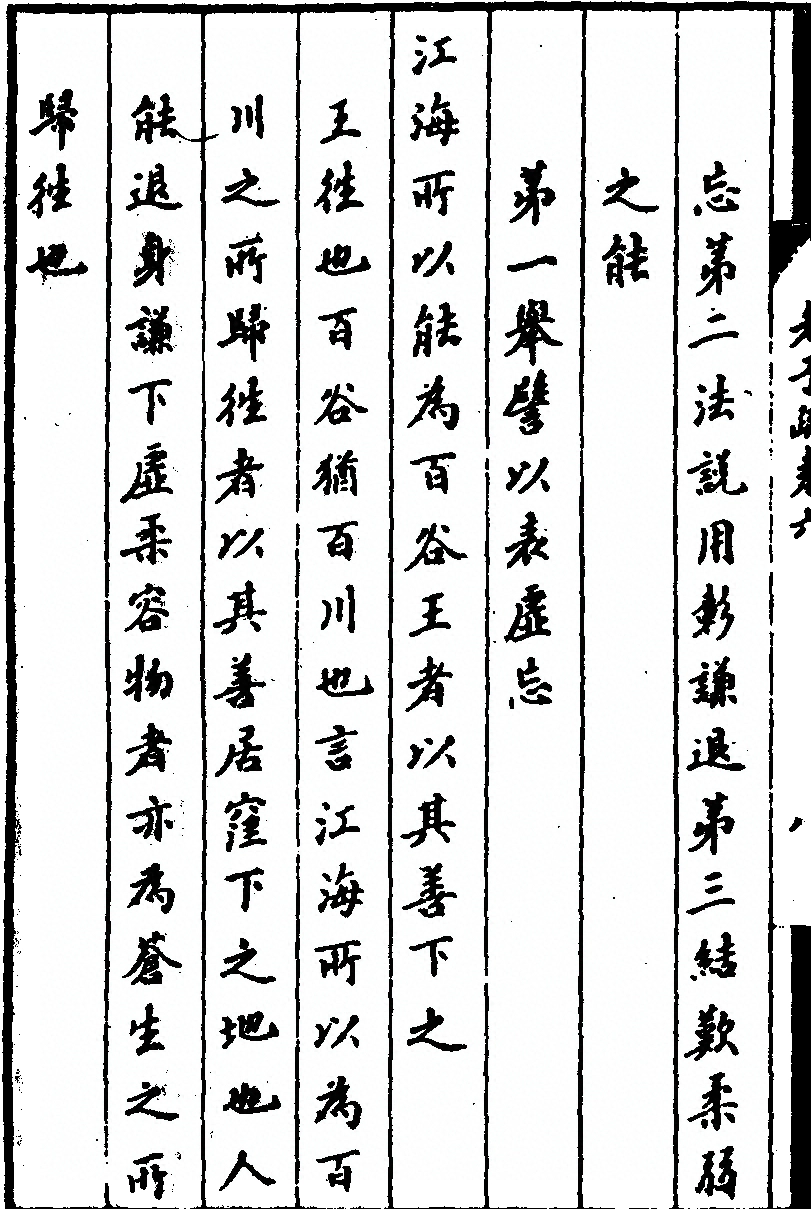 忘第二法説用彰謙退第三結歎柔弱
之能
第一舉譬以表虛忘
江海所以能為百谷王者以其善下之
王往也百谷猶百川也言江海所以為百
川之所歸往者以其善居窪下之地也人
能退身謙下虛柔容物者亦為蒼生之所
歸往也